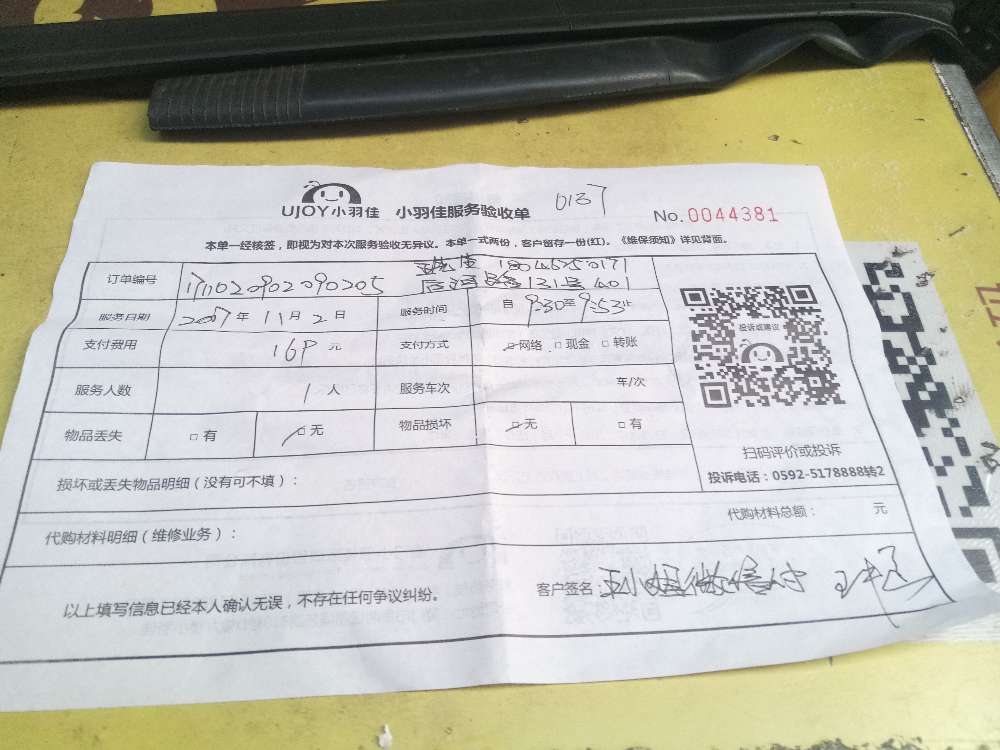 UJOY小羽佳 小羽佳服务验收单 0137 No.0044381
本单一经核签，即视为对本次服务验收无异议。本单一式两份，客户留存一份(红)。《维保须知》详见背面。
18046250171
订单编号 1711020902090205 131号401
服务日期 2017年11月2日 服务时间 自9:30至9:53止
投诉或建议
支付费用 169元 支付方式 □网络 □现金 □转账
服务人数 1人 服务车次 车/次
物品丢失 □有 □无 物品损坏 □无 □有
扫码评价或投诉
投诉电话：0592-5178888转2
损坏或丢失物品明细（没有可不填）：
代购材料明细（维修业务）： 代购材料总额： 元
以上填写信息已经本人确认无误，不存在任何争议纠纷。 客户签名：王小姐微信付